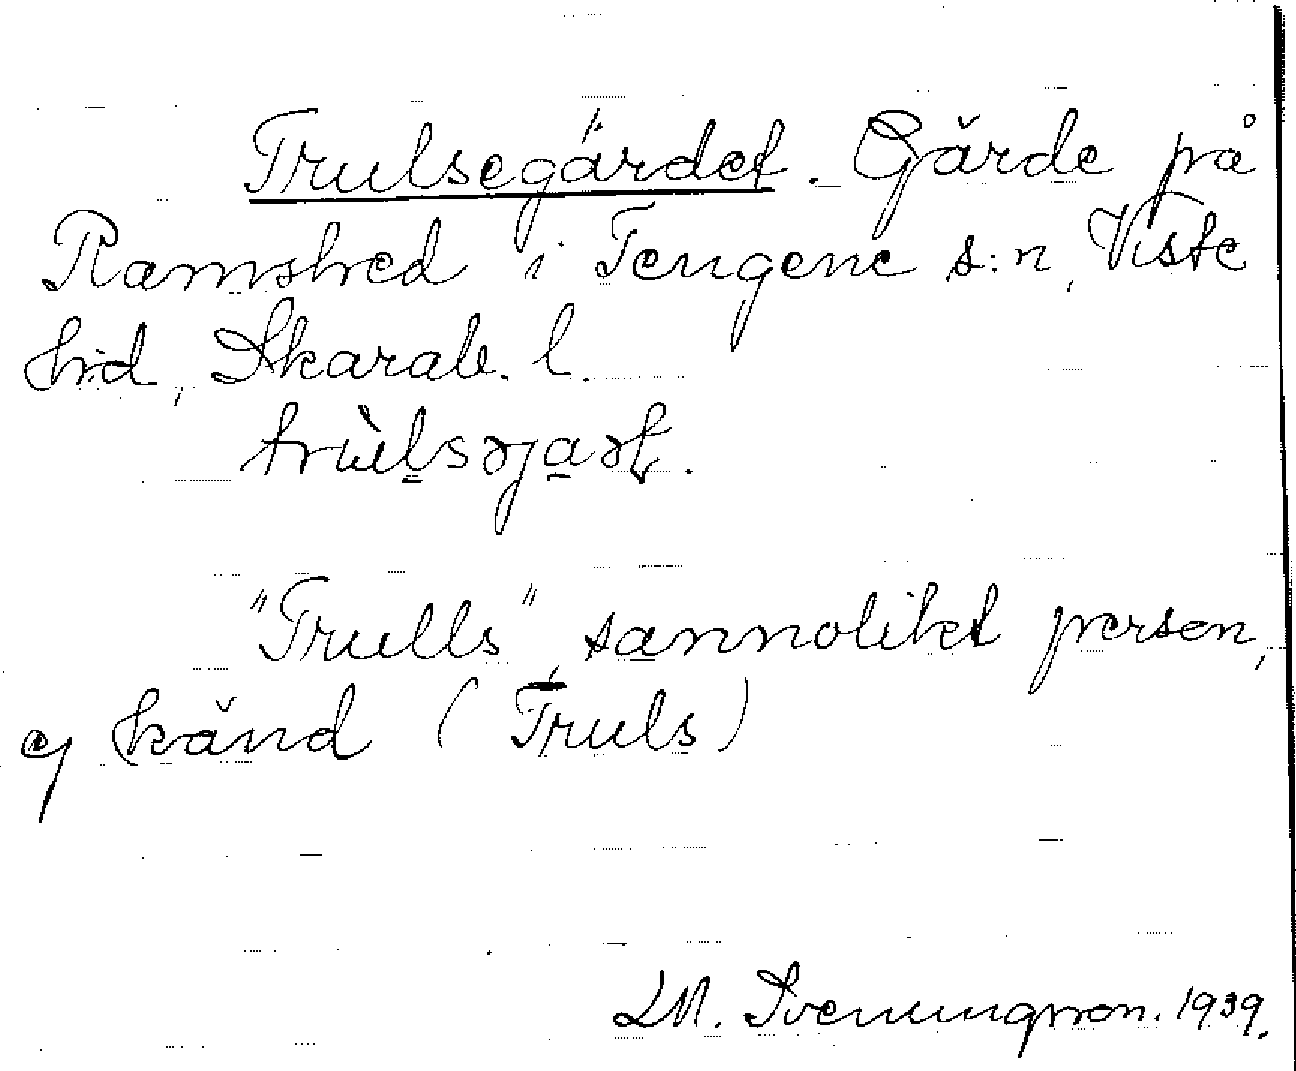 Trulsegärdet. Gärde på
Ramshed i Tengene s:n, Viste
hrd, Skarab. l.
trùlsəjaət.
"Trulls", sannolikt person,
ej känd (Truls)
LM. Svenungsson. 1939.